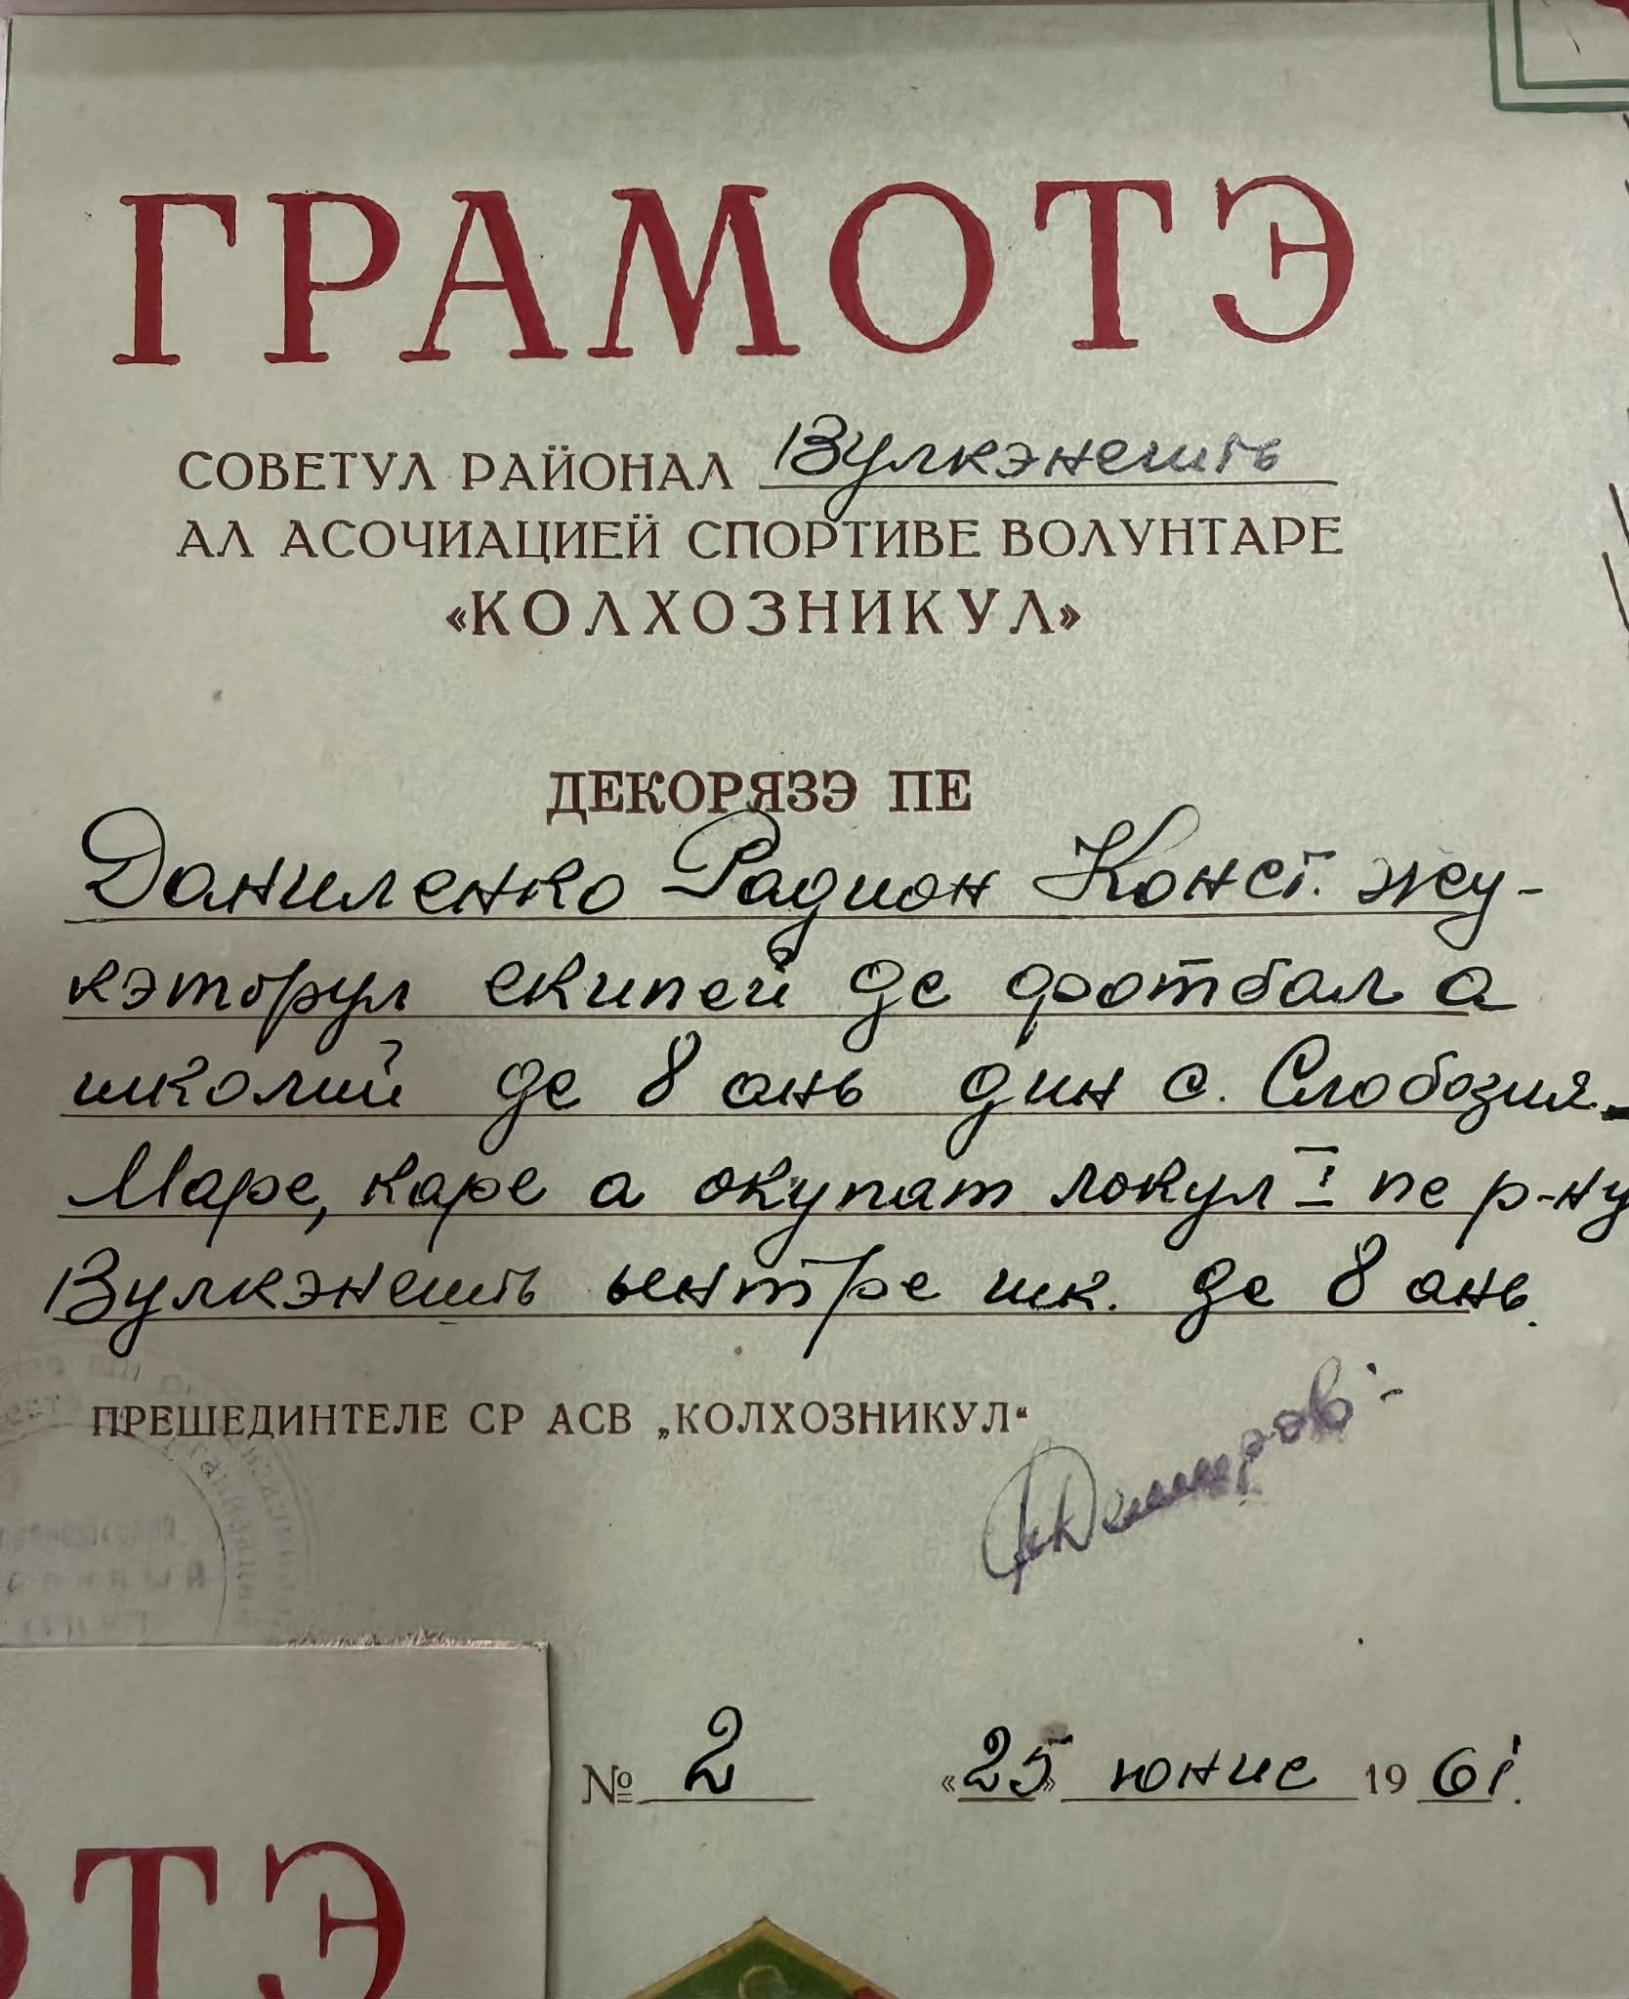 ГРАМОТЭ
СОВЕТУЛ РАЙОНАЛ Вулкэнешть
АЛ АСОЧИАЦИЕЙ СПОРТИВЕ ВОЛУНТАРЕ
«КОЛХОЗНИКУЛ»
ДЕКОРЯЗЭ ПЕ
Даниленко Радион Конст. жу-
кэторул екипей де фотбал а
школий де 8 ань дин с. Слобозия-
Маре, каре а окупат локул I пе р-ну
Вулкэнешть ынтре шк. де 8 ань.
ПРЕШЕДИНТЕЛЕ СР АСВ „КОЛХОЗНИКУЛ“
Димитров
№ 2 «25» юние 1961.
ОТЭ